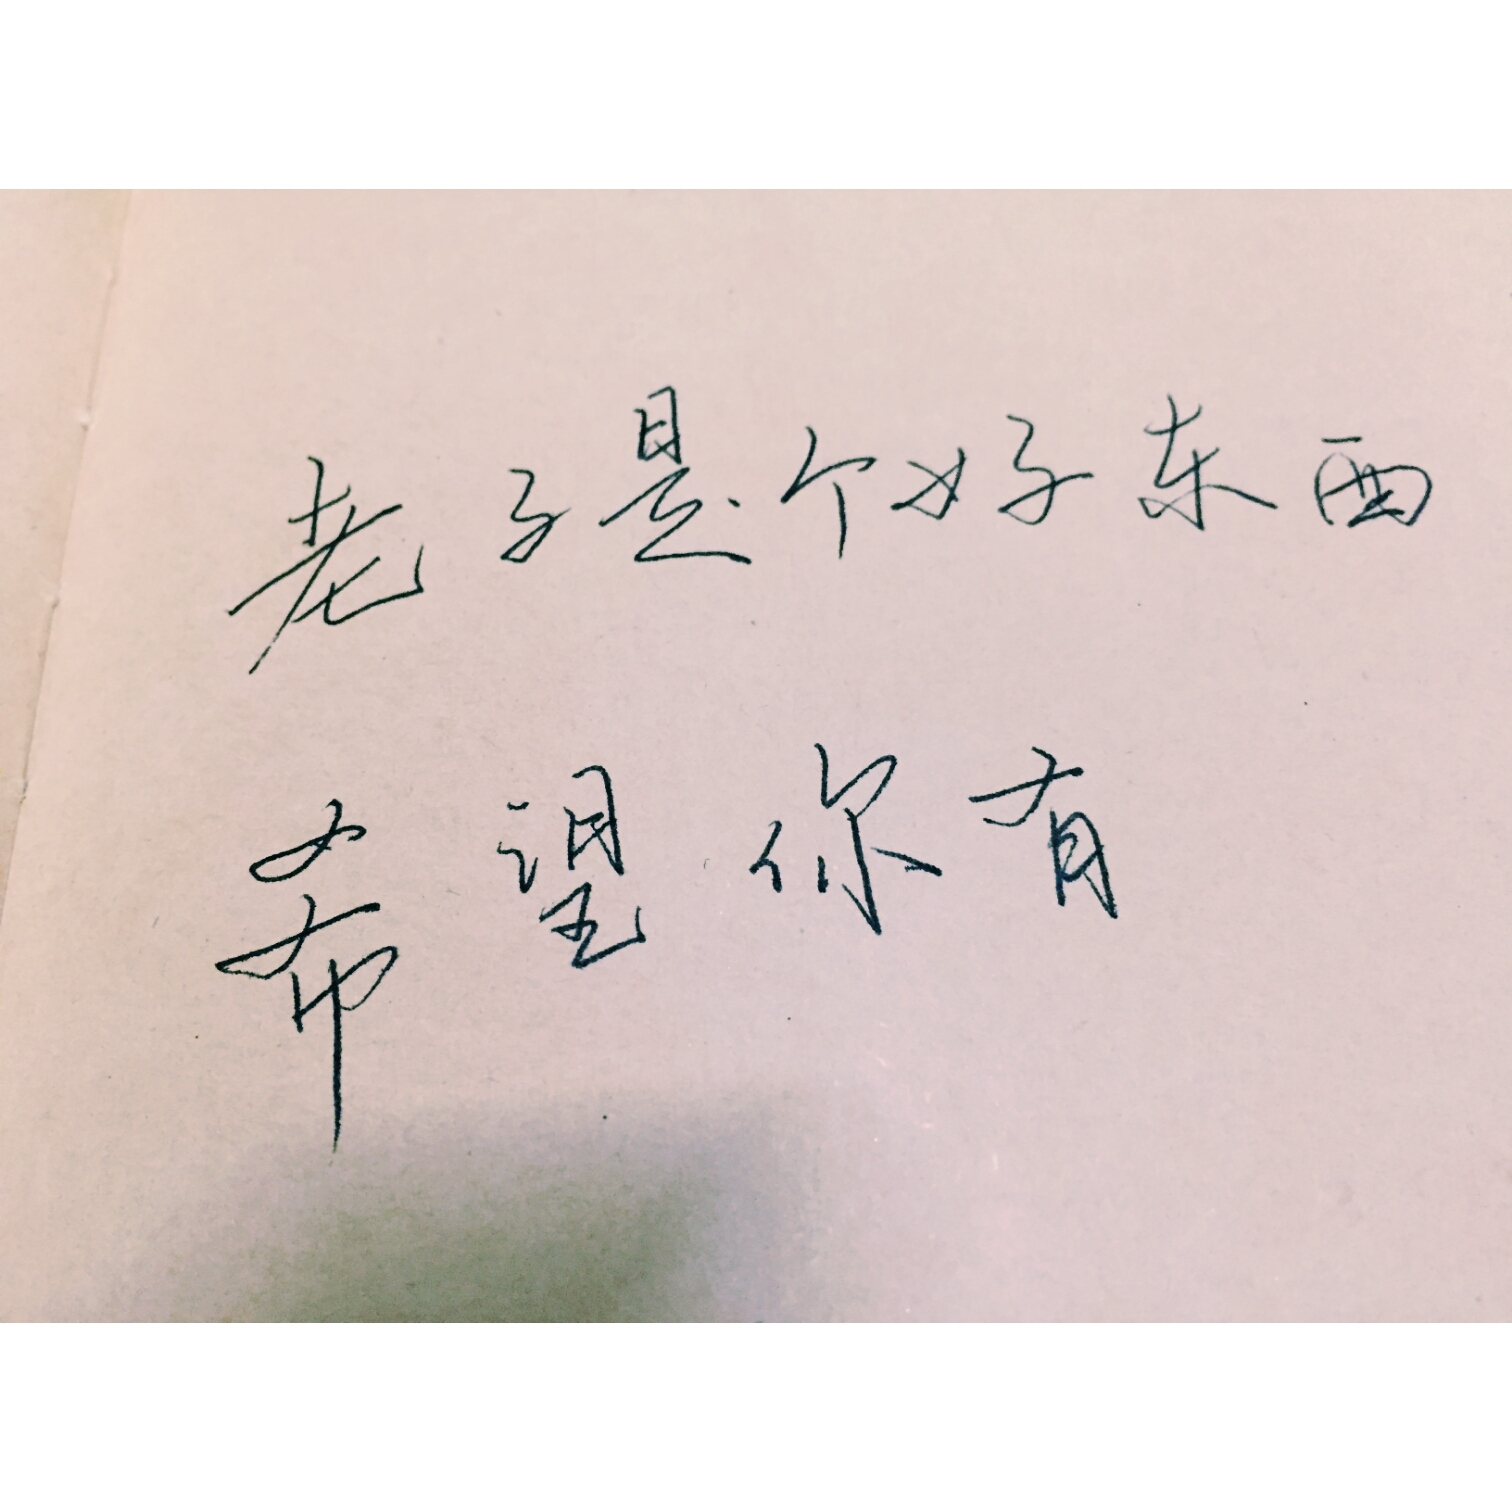 老子是个好东西
希望你有